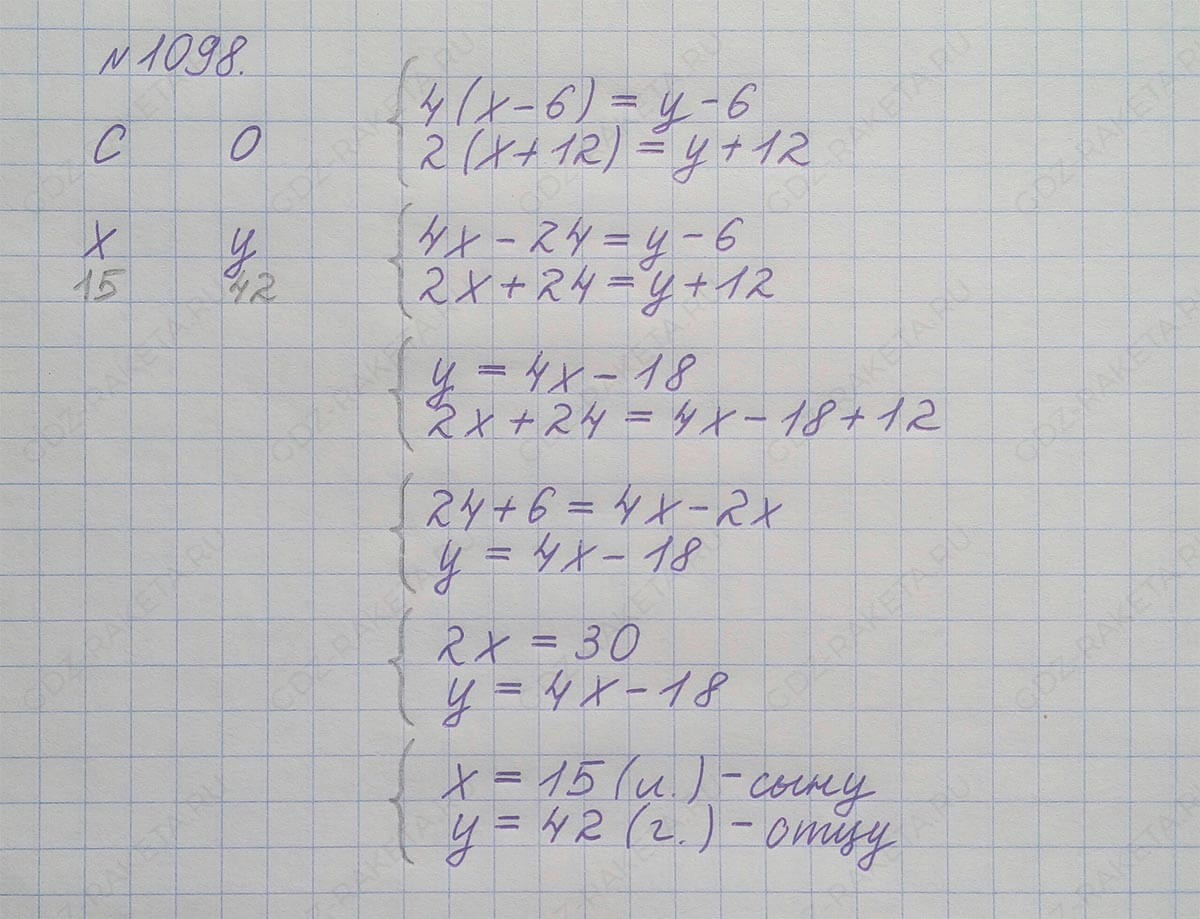 №1098.
С О
x y
15 42
4(x-6) = y-6
2(x+12) = y+12
4x-24=y-6
2x+24=y+12
y = 4x-18
2x+24 = 4x-18+12
24+6 = 4x-2x
y = 4x-18
2x = 30
y = 4x-18
x = 15 (л.) - сыну
y = 42 (г.) - отцу
GDZ-RAKETA.RU